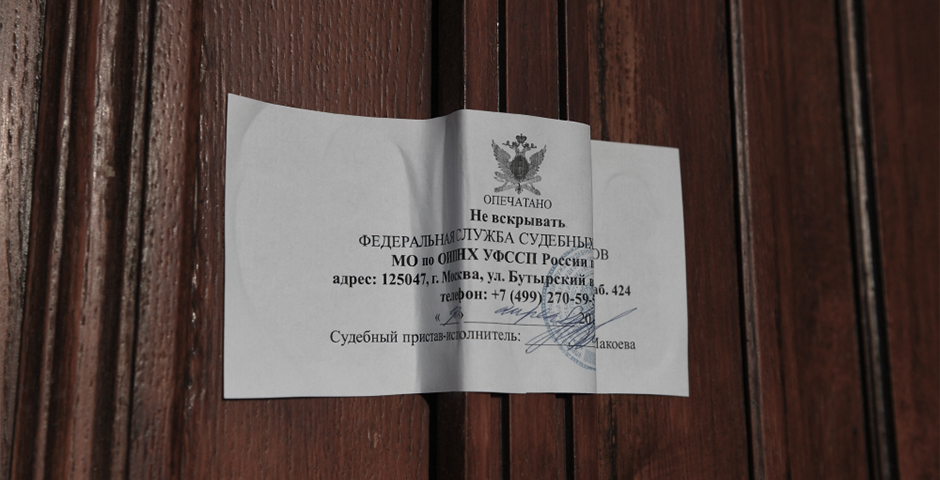 ОПЕЧАТАНО
Не вскрывать
ФЕДЕРАЛЬНАЯ СЛУЖБА СУДЕБНЫХ ОВ
МО по ОИПНХ УФССП России
адрес: 125047, г. Москва, ул. Бутырский аб. 424
телефон: +7 (499) 270-59-
« » апреля 20
Судебный пристав-исполнитель: Макоева